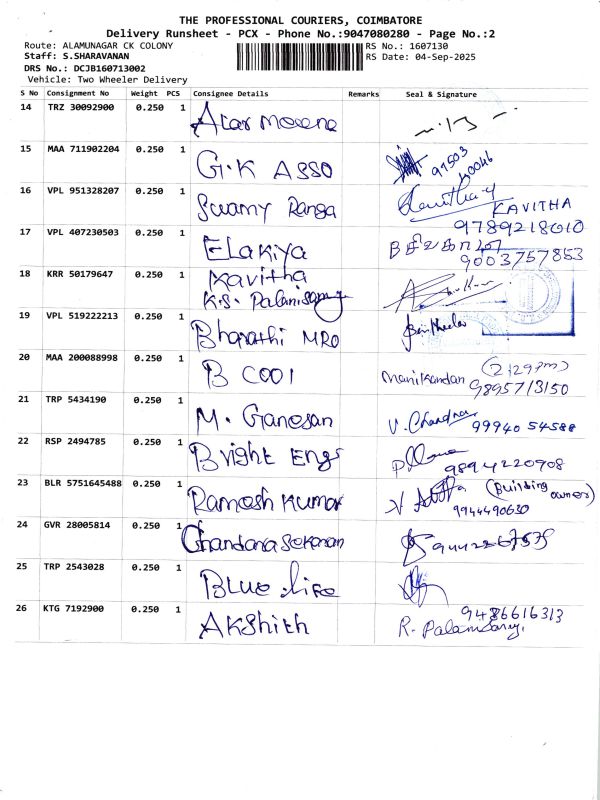 THE PROFESSIONAL COURIERS, COIMBATORE
Delivery Runsheet - PCX - Phone No.:9047080280 - Page No.:2
Route: ALAMUNAGAR CK COLONY RS No.: 1607130
Staff: S.SHARAVANAN RS Date: 04-Sep-2025
DRS No.: DCJB160713002
Vehicle: Two Wheeler Delivery
S No Consignment No Weight PCS Consignee Details Remarks Seal & Signature
14 TRZ 30092900 0.250 1
15 MAA 711902204 0.250 1 G.K ASSO
16 VPL 951328207 0.250 1 Swamy Ranga KAVITHA
9789218010
17 VPL 407230503 0.250 1 ELakiya
9003757853
18 KRR 50179647 0.250 1 Kavitha
K.S. Palanisamy
19 VPL 519222213 0.250 1 Bharathi MRO
20 MAA 200088998 0.250 1 B COOl Manikandan (2:29pm)
9895713150
21 TRP 5434190 0.250 1 M. Ganesan V. Chandran 99940 54588
22 RSP 2494785 0.250 1 Bright Engs 9894220908
23 BLR 5751645488 0.250 1 Ramesh Kumar (Building owner)
9944490630
24 GVR 28005814 0.250 1 Chandana Sekaran
25 TRP 2543028 0.250 1 BLUE Life
26 KTG 7192900 0.250 1 AKShith 9486616313
R. Palanisamy.